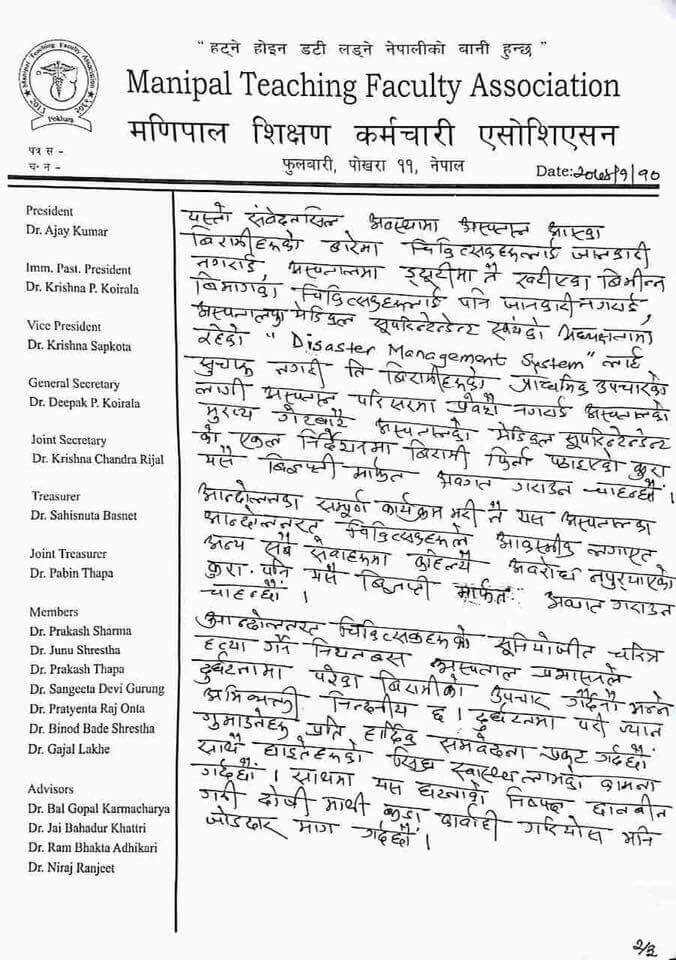 " हट्ने होइन डटी लड्ने नेपालीको वानी हुन्छ "
Manipal Teaching Faculty Association
मणिपाल शिक्षण कर्मचारी एसोशिएसन
फुलबारी, पोखरा ११, नेपाल
पत्र स -
च - न -
Date:
Manipal Teaching Faculty Association
Pokhara
President
Dr. Ajay Kumar
Imm. Past. President
Dr. Krishna P. Koirala
Vice President
Dr. Krishna Sapkota
General Secretary
Dr. Deepak P. Koirala
Joint Secretary
Dr. Krishna Chandra Rijal
Treasurer
Dr. Sahisnuta Basnet
Joint Treasurer
Dr. Pabin Thapa
Members
Dr. Prakash Sharma
Dr. Junu Shrestha
Dr. Prakash Thapa
Dr. Sangeeta Devi Gurung
Dr. Pratyenta Raj Onta
Dr. Binod Bade Shrestha
Dr. Gajal Lakhe
Advisors
Dr. Bal Gopal Karmacharya
Dr. Jai Bahadur Khattri
Dr. Ram Bhakta Adhikari
Dr. Niraj Ranjeet
यस्तो संवेदनसिल अवस्थामा अस्पताल आएका
बिरामीहरुको बारेमा चिकित्सकहरुलाई जानकारी
नगराई, अस्पतालमा ड्यूटीमा नै खटीएका बिभीन्न
बिभागका चिकित्सकहरुलाई पनि जानकारी नगराई,
अस्पतालका मेडिकल सूपरिन्टेन्डेन्ट स्वयंको अध्यक्षतामा
रहेको " Disaster Management System" लाई
सुचारु नगरी ति बिरामीहरुको प्राथमिक उपचारको
लागी अस्पताल परिसरमा प्रवेश नगराई अस्पतालको
मुख्य गेटबाटै अस्पतालको मेडिकल सूपरिन्टेन्डेन्ट
को एकल निर्देशनमा बिरामी फिर्ता पठाइएको कुरा
यसै बिज्ञप्ती मार्फत अवगत गराउन चाहन्छौं ।
आन्दोलनका सम्पूर्ण कार्यक्रम भरी नै यस अस्पतालका
आन्दोलनरत चिकित्सकहरुले आकस्मीक लगाएत
अन्य सबै सेवाहरुमा कहिल्यै अवरोध नपुर्‍याएको
कुरा पनि यसै बिज्ञप्ती मार्फत अवगत गराउन
चाहन्छौं ।
आन्दोलनरत चिकित्सकहरुको सूनियोजीत चरित्र
हत्या गर्ने नियतबस अस्पताल प्रशासनले
दुर्घटनामा परेका बिरामीको उपचार गर्दैनौ भन्ने
अभिव्यक्ती निन्दनीय छ । दुर्घटनामा परी ज्यान
गुमाउनेहरु प्रति हार्दिक समवेदना प्रकट गर्दछौं
साथै घाइतेहरुको सिघ्र स्वास्थ्यलाभको कामना
गर्दछौं । साथमा यस घटनाको निष्पक्ष छानबीन
गरी दोषी माथी कडा कार्वाही गरियोस भनि
जोडदार माग गर्दछौं ।
2/3